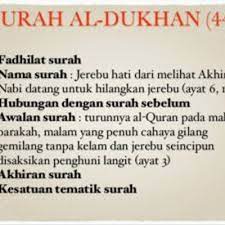 SURAH AL-DUKHAN (44
Fadhilat surah
Nama surah : Jerebu hati dari melihat Akhir
Nabi datang untuk hilangkan jerebu (ayat 6, 1
Hubungan dengan surah sebelum
Awalan surah : turunnya al-Quran pada mal
barakah, malam yang penuh cahaya gilang
gemilang tanpa kelam dan jerebu seincipun
disaksikan penghuni langit (ayat 3)
Akhiran surah
Kesatuan tematik surah